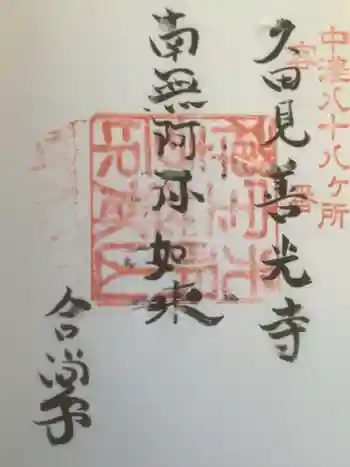 中津八十八ヶ所
客番
久田見善光寺
南無阿弥如来
合掌